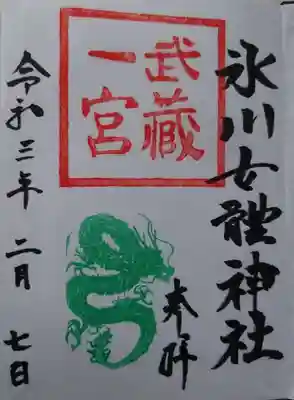 氷川女體神社
奉拝
武藏
一宮
令和三年 二月 七日